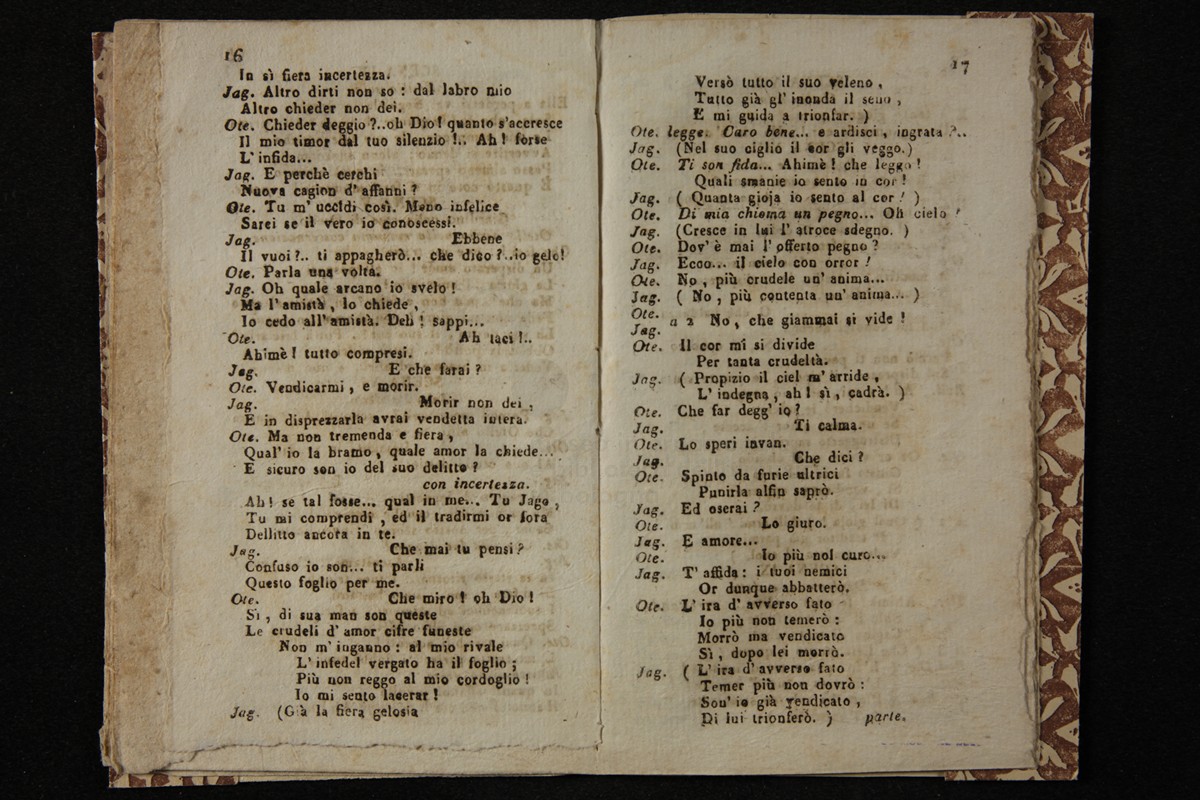 16
In sì fiera incertezza.
Jag. Altro dirti non so : dal labro mio
Altro chieder non dei.
Ote. Chieder deggio ?..oh Dio ! quanto s'accresce
Il mio timor dal tuo silenzio !.. Ah ! forse
L' infida...
Jag. E perchè cerchi
Nuova cagion d' affanni ?
Ote. Tu m' uccidi così. Meno infelice
Sarei se il vero io conoscessi.
Jag. Ebbene
Il vuoi ?.. ti appagherò... che dico ?..io gelo!
Ote. Parla una volta.
Jag. Oh quale arcano io svelo !
Ma l' amistà , lo chiede ,
Io cedo all' amistà. Deh ! sappi...
Ote. Ah taci !..
Ahimè ! tutto compresi.
Jag. E che farai ?
Ote. Vendicarmi , e morir.
Jag. Morir non dei ,
E in disprezzarla avrai vendetta intera.
Ote. Ma non tremenda e fiera ,
Qual' io la bramo , quale amor la chiede...
E sicuro son io del suo delitto ?
con incertezza.
Ah! se tal fosse... qual in me... Tu Jago ,
Tu mi comprendi , ed il tradirmi or fora
Dellitto ancora in te.
Jag. Che mai tu pensi ?
Confuso io son... ti parli
Questo foglio per me.
Ote. Che miro ! oh Dio !
Sì , di sua man son queste
Le crudeli d' amor cifre funeste
Non m' inganno : al mio rivale
L' infedel vergato ha il foglio ;
Più non reggo al mio cordoglio !
Io mi sento lacerar !
Jag. (Già la fiera gelosia
17
Versò tutto il suo veleno ,
Tutto già gl' inonda il seno ,
E mi guida a trionfar. )
Ote. legge. Caro bene... e ardisci , ingrata ?..
Jag. (Nel suo ciglio il cor gli veggo.)
Ote. Ti son fida... Ahimè ! che leggo !
Quali smanie io sento in cor !
Jag. ( Quanta gioja io sento al cor ! )
Ote. Di mia chioma un pegno... Oh cielo !
Jag. (Cresce in lui l' atroce sdegno. )
Ote. Dov' è mai l' offerto pegno ?
Jag. Ecco... il cielo con orror !
Ote. No , più crudele un' anima...
Jag. ( No , più contenta un' anima... )
Ote.
a 2 No, che giammai si vide !
Jag.
Ote. Il cor mi si divide
Per tanta crudeltà.
Jag. ( Propizio il ciel m' arride ,
L' indegna , ah ! sì , cadrà. )
Ote. Che far degg' io ?
Jag. Ti calma.
Ote. Lo speri invan.
Jag. Che dici ?
Ote. Spinto da furie ultrici
Punirla alfin saprò.
Jag. Ed oserai ?
Ote. Lo giuro.
Jag. E amore...
Ote. Io più nol curo...
Jag. T' affida : i tuoi nemici
Or dunque abbatterò.
Ote. L' ira d' avverso fato
Io più non temerò :
Morrò ma vendicato
Sì , dopo lei morrò.
Jag. ( L' ira d' avverso fato
Temer più non dovrò :
Son' io già vendicato ,
Di lui trionferò. ) parte.